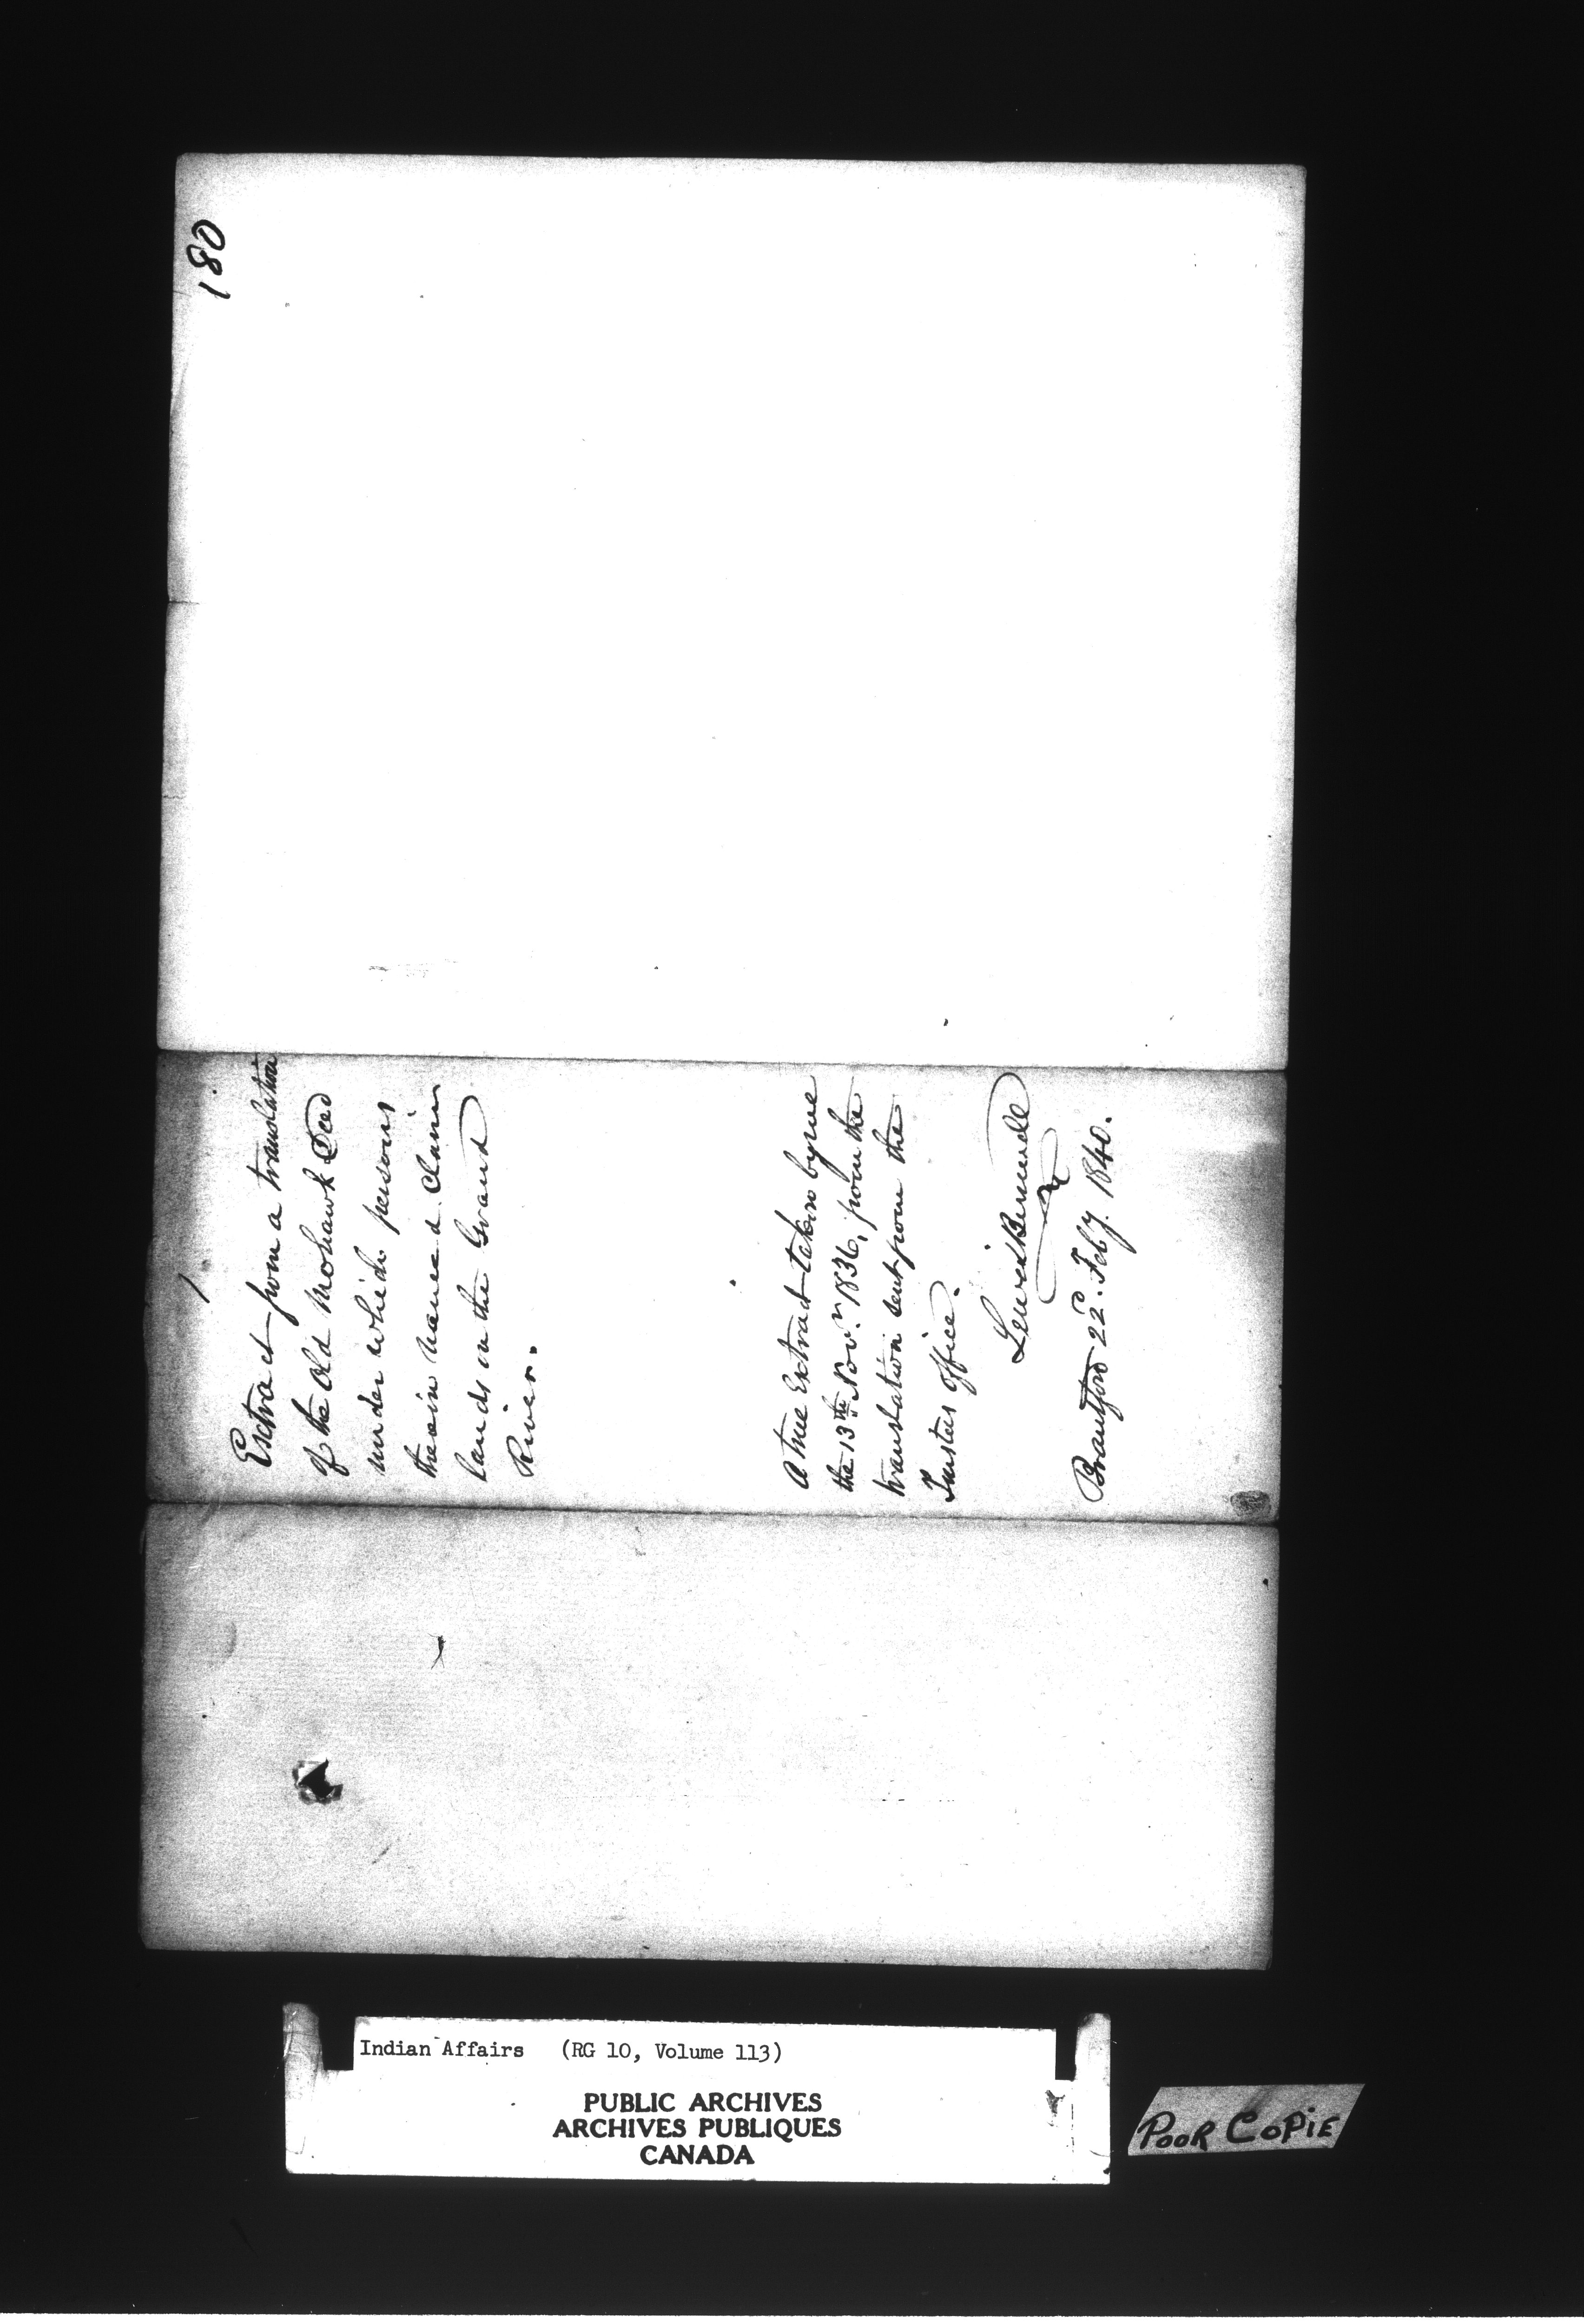 180
1.
Extract from a translation
of the Old Mohawk Deed
under which persons
therein named claim
lands on the Grand
River.
A true Extract taken by me
the 13th Novr. 1836, from the
translation sent from the
Trustees office.
Lewis Burwell
Brantford 22d. Feby. 1840.
Indian Affairs (RG 10, Volume 113)
PUBLIC ARCHIVES
ARCHIVES PUBLIQUES
CANADA
POOR COPIE